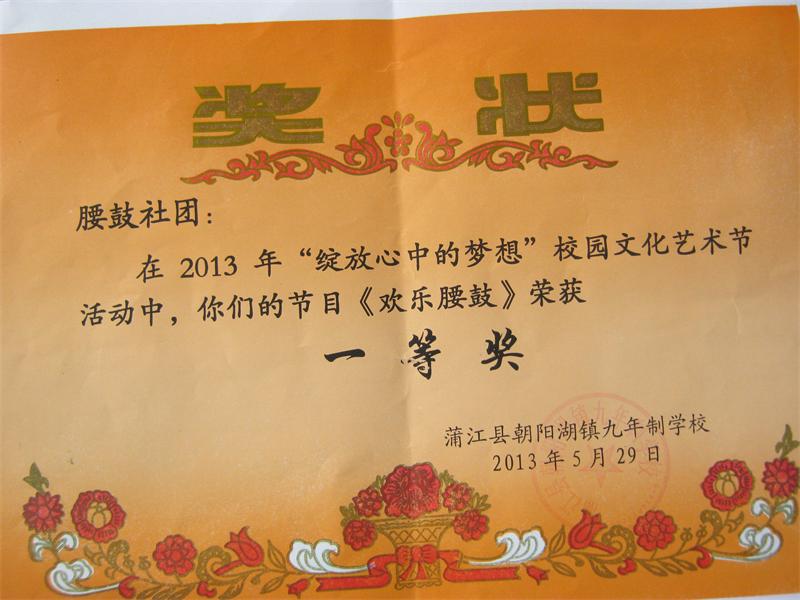 奖状
腰鼓社团：
在 2013 年“绽放心中的梦想”校园文化艺术节
活动中，你们的节目《欢乐腰鼓》荣获
一等奖
蒲江县朝阳湖镇九年制学校
2013 年 5 月 29 日